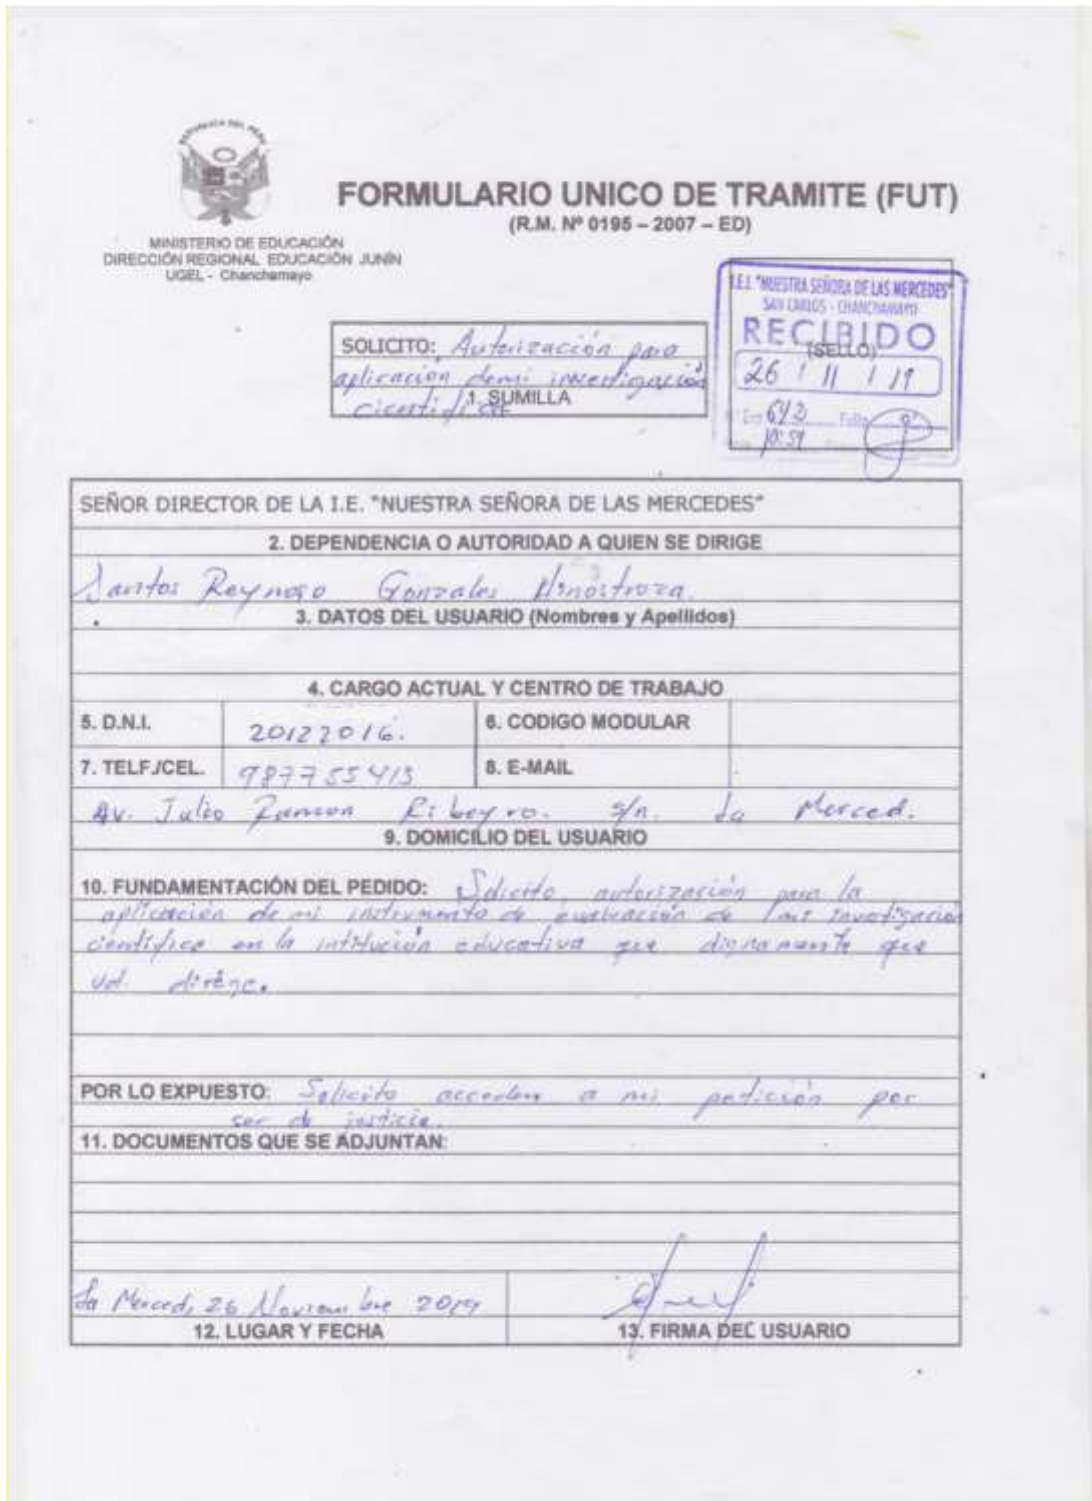 REPUBLICA DEL PERU
MINISTERIO DE EDUCACIÓN
DIRECCIÓN REGIONAL EDUCACIÓN JUNÍN
UGEL - Chanchamayo
FORMULARIO UNICO DE TRAMITE (FUT)
(R.M. Nº 0195 – 2007 – ED)
I.E.I. "NUESTRA SEÑORA DE LAS MERCEDES"
SAN CARLOS - CHANCHAMAYO
RECIBIDO
(SELLO)
26 / 11 / 19
Nº Exp 642 Folio
10:59
SOLICITO: Autorización para
aplicación demi investigación
1. SUMILLA
SEÑOR DIRECTOR DE LA I.E. "NUESTRA SEÑORA DE LAS MERCEDES"
2. DEPENDENCIA O AUTORIDAD A QUIEN SE DIRIGE
Santos Reynoso Gonzales Hinostroza.
3. DATOS DEL USUARIO (Nombres y Apellidos)
4. CARGO ACTUAL Y CENTRO DE TRABAJO
5. D.N.I. 20122016. 6. CODIGO MODULAR
7. TELF./CEL. 987755413 8. E-MAIL
Av. Julio Ramon Ribeyro. s/n. La Merced.
9. DOMICILIO DEL USUARIO
10. FUNDAMENTACIÓN DEL PEDIDO: Solicito, autorización para la
aplicación de mi instrumento de evaluación de mi investigación
científica en la intitución educativa que dignamente que
Ud. dirige.
POR LO EXPUESTO: Solicito acceder a mi petición por
ser de justicia.
11. DOCUMENTOS QUE SE ADJUNTAN:
La Merced, 26 Noviembre 2019
12. LUGAR Y FECHA 13. FIRMA DEL USUARIO